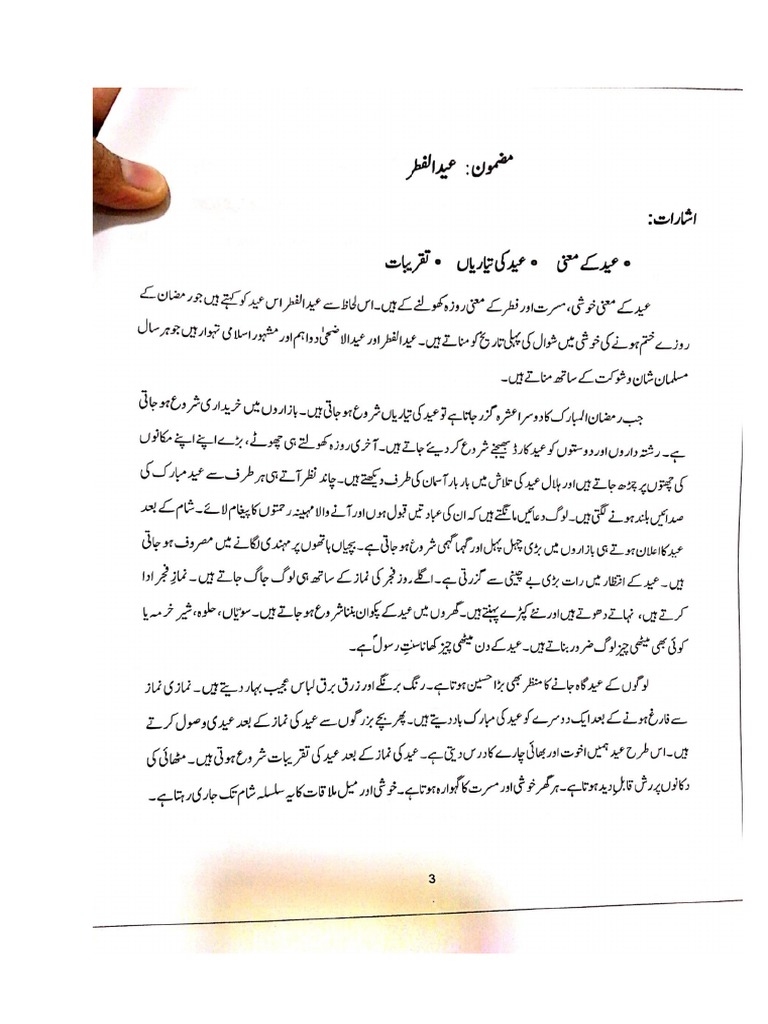 مضمون: عیدالفطر
اشارات:
• عید کے معنی • عید کی تیاریاں • تقریبات
عید کے معنی خوشی، مسرت اور فطر کے معنی روزہ کھولنے کے ہیں۔ اس لحاظ سے عیدالفطر اس عید کو کہتے ہیں جو رمضان کے
روزے ختم ہونے کی خوشی میں شوال کی پہلی تاریخ کو مناتے ہیں۔ عیدالفطر اور عیدالاضحیٰ دو اہم اور مشہور اسلامی تہوار ہیں جو ہر سال
مسلمان شان و شوکت کے ساتھ مناتے ہیں۔
جب رمضان المبارک کا دوسرا عشرہ گزر جاتا ہے تو عید کی تیاریاں شروع ہو جاتی ہیں۔ بازاروں میں خریداری شروع ہو جاتی
ہے۔ رشتہ داروں اور دوستوں کو عید کارڈ بھیجنے شروع کر دیئے جاتے ہیں۔ آخری روزہ کھولتے ہی چھوٹے، بڑے اپنے اپنے مکانوں
کی چھتوں پر چڑھ جاتے ہیں اور ہلال عید کی تلاش میں بار بار آسمان کی طرف دیکھتے ہیں۔ چاند نظر آتے ہی ہر طرف سے عید مبارک کی
صدائیں بلند ہونے لگتی ہیں۔ لوگ دعائیں مانگتے ہیں کہ ان کی عبادتیں قبول ہوں اور آنے والا مہینہ رحمتوں کا پیغام لائے۔ شام کے بعد
عید کا اعلان ہوتے ہی بازاروں میں بڑی چہل پہل اور گہما گہمی شروع ہو جاتی ہے۔ بچیاں ہاتھوں پر مہندی لگانے میں مصروف ہو جاتی
ہیں۔ عید کے انتظار میں رات بڑی بے چینی سے گزرتی ہے۔ اگلے روز فجر کی نماز کے ساتھ ہی لوگ جاگ جاتے ہیں۔ نمازِ فجر ادا
کرتے ہیں، نہاتے دھوتے ہیں اور نئے کپڑے پہنتے ہیں۔ گھروں میں عید کے پکوان بننا شروع ہو جاتے ہیں۔ سویّاں، حلوہ، شیر خرمہ یا
کوئی بھی میٹھی چیز لوگ ضرور بناتے ہیں۔ عید کے دن میٹھی چیز کھانا سنتِ رسولؐ ہے۔
لوگوں کے عیدگاہ جانے کا منظر بھی بڑا حسین ہوتا ہے۔ رنگ برنگے اور زرق برق لباس عجیب بہار دیتے ہیں۔ نمازی نماز
سے فارغ ہونے کے بعد ایک دوسرے کو عید کی مبارک باد دیتے ہیں۔ پھر بچے بزرگوں سے عید کی نماز کے بعد عیدی وصول کرتے
ہیں۔ اس طرح عید ہمیں اخوت اور بھائی چارے کا درس دیتی ہے۔ عید کی نماز کے بعد عید کی تقریبات شروع ہوتی ہیں۔ مٹھائی کی
دکانوں پر رش قابلِ دید ہوتا ہے۔ ہر گھر خوشی اور مسرت کا گہوارہ ہوتا ہے۔ خوشی اور میل ملاقات کا یہ سلسلہ شام تک جاری رہتا ہے۔
3